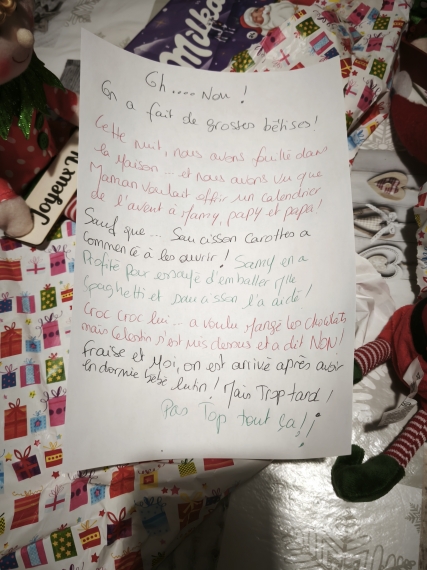 Milka
Joyeux N
Oh .... Non !
On a fait de grosses bêtises !
Cette nuit, nous avons fouillé dans
la Maison ... et nous avons vu que
Maman voulait offrir un calendrier
de l'avent à Mamy, papy et papa !
Sauf que ... Saucisson Carottes a
commencé à les ouvrir ! Samy en a
Profité pour essayé d'emballer Mlle
Spaghetti et Saucisson l'a aidé !
Croc Croc lui ... a voulu Mangé les chocolats
mais Célestin s'est mis dessus et a dit NON !
Fraise et Moi, on est arrivé après avoir
endormie bébé lutin ! Mais Trop tard !
Pas Top tout ça !!